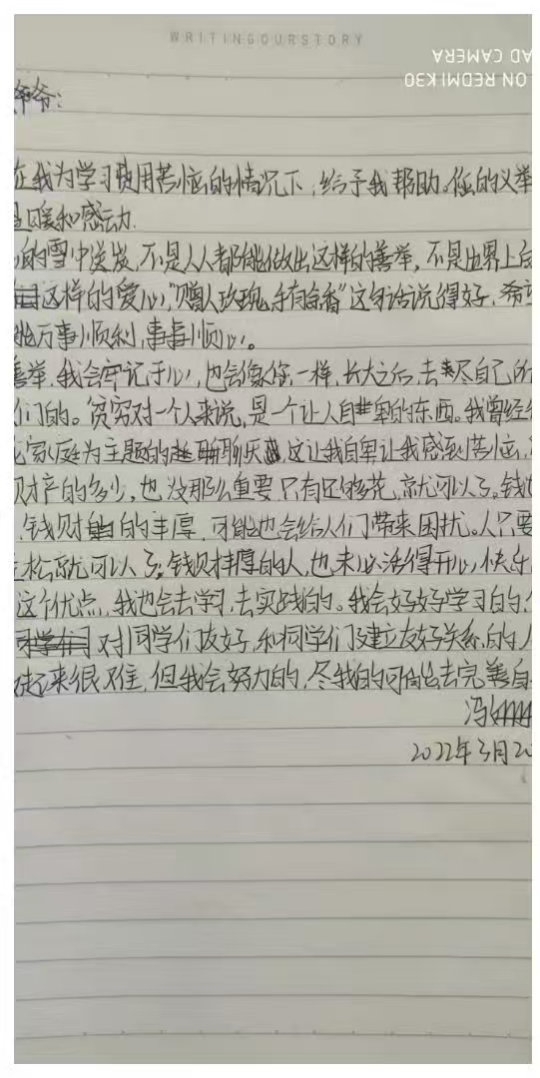 WRITINGOURSTORY
ON REDMI K30
AD CAMERA
爷爷：
在我为学习费用苦恼的情况下，给予我帮助。您的义举
温暖和感动.
的雪中送炭，不是人人都能做出这样的善举，不是世界上
这样的爱心，“赠人玫瑰，手有余香”这句话说得好，希
万事顺利，事事顺心。
善举，我会牢记于心，也会像您一样，长大之后，去尽自己所
们的。贫穷对一个人来说，是一个让人自卑的东西。我曾经
家庭为主题的聊天，这让我自卑让我感到苦恼，
财产的多少，也没那么重要只有足够花，就可以了。钱
，钱财的丰厚，可能也会给人们带来困扰。人只要
松就可以了。钱财丰厚的人，也未必活得开心，快乐
这个优点，我也会去学习，去实践的。我会好好学习的，
对同学们友好，和同学们建立友好关系的，
起来很难，但我会努力的，尽我的可能去完善自
冯
2022年3月20